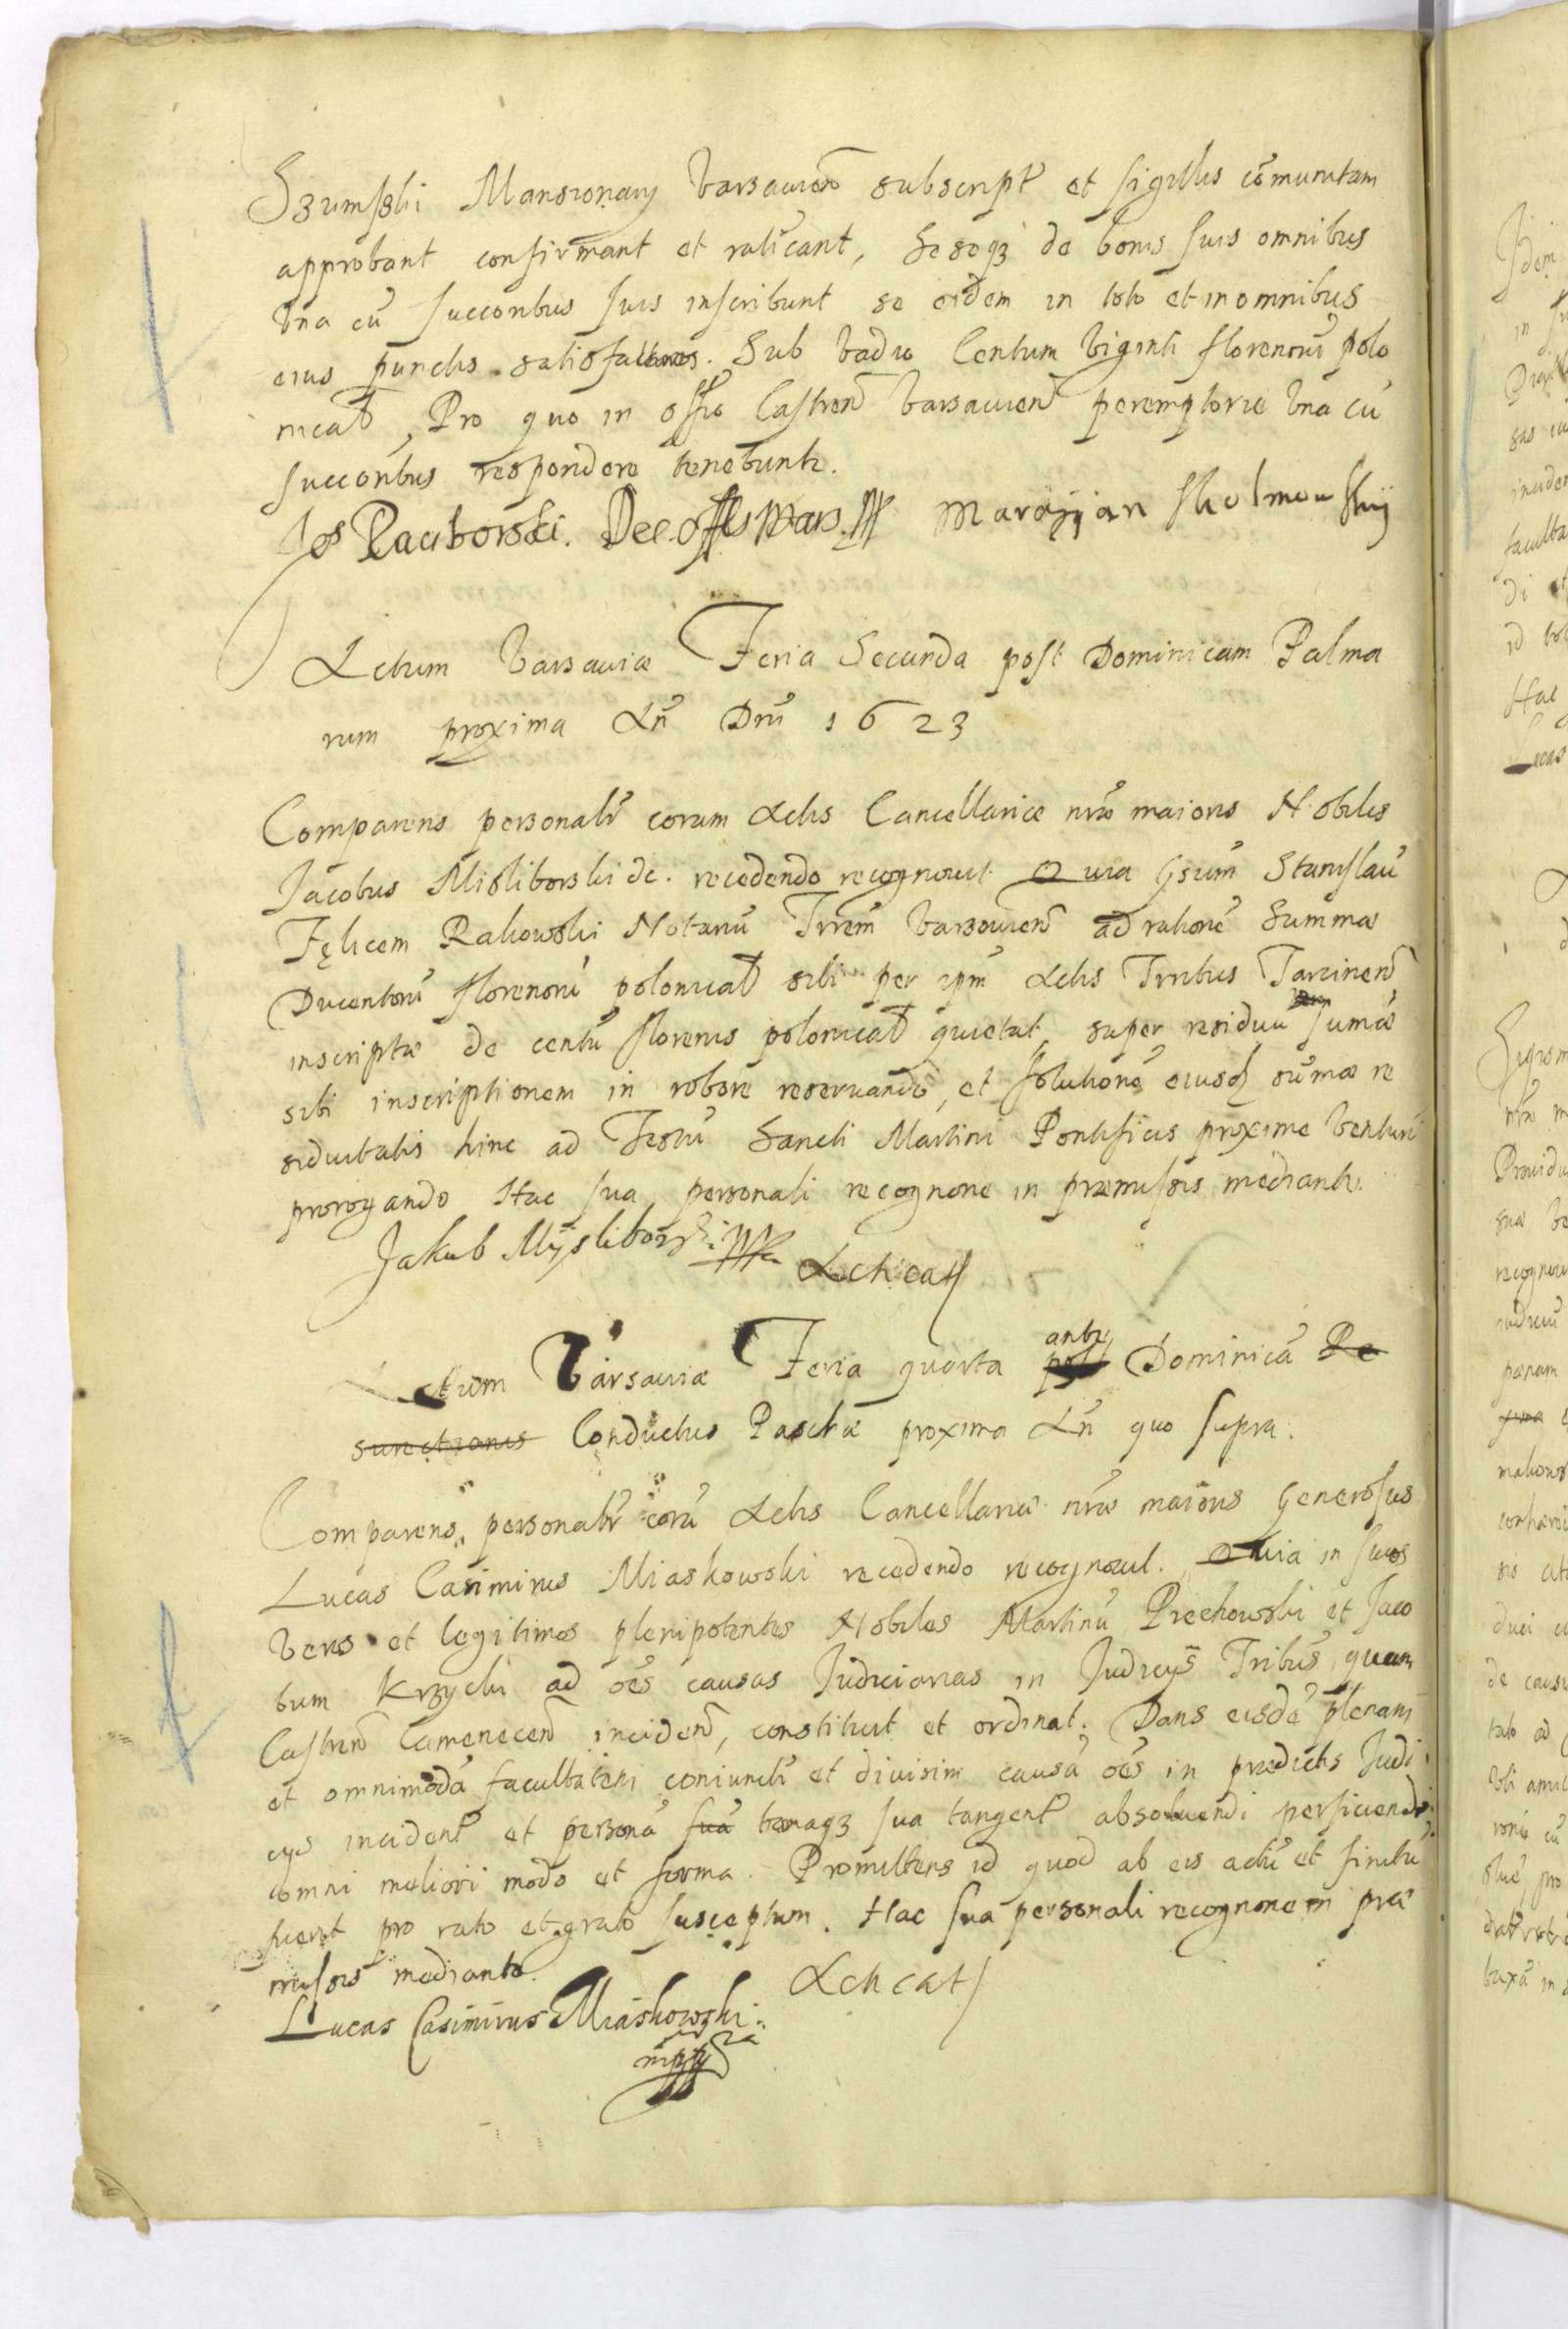 Szumski Mansionarÿ Varsauieñ subscript̃ et sigillis cõmunitam
approbant confirmant et ratificant, Seseqз de bonis suis omnibus
Vna cũ succoribus suis inscribunt se eidem in toto et in omnibus
eius punctis satisfacturos. Sub vadio Centum Viginti florenorũ polo
nicał, Pro quo in offio Castreñ Varsauieñ peremptorie Vna cũ
succoribus respondere tenebunt.
Jos Raciborski. Dec. Offlis Wars. mpp Maraÿjan Skolmowskij
Actum Varsauiæ Feria Secunda post Dominicam Palma
rum proxima Añ Dni 1623
Comparens personalr̃ coram Actis Cancellariæ nr̃æ maioris Nobilis
Jacobus Misliborski dc. recedendo recognouit Quia Gsum Stanislaũ
Fęlicem Rakowski Notariũ Trrem Varsouieñ ad rationẽ Summæ
Ducentorũ florenorũ polonicał sibi per ipm̃ Actis Trribus Tarcineñ
inscriptæ de centũ florenis polonicał quietat, super residuũ sumæ
sibi inscriptionem in robore reseruando, et solutionẽ eiusd sũmæ re
siduitatis hinc ad Festũ Sancti Martini Pontificis proxime Venturũ
prorogando Hac sua personali recognone in præmissis mediante.
Jakub Mÿsliborski mpp
Acticat
Actum Varsauiæ Feria quarta post ante Dominicã Re
surectionis Conductus Paschæ proxima Añ quo supra.
Comparens personalr̃ corã Actis Cancellariæ nr̃æ maioris Generosus
Lucas Casimirus Miaskowski recedendo recognouit. Quia in suos
veros et legitimos plenipotentes Nobiles Martinũ Prechowski et Jaco
bum Krzycki ad oẽs causas Judiciarias in Judicÿs Tribũs quam
Castreñ Cameneceñ incideñ, constituit et ordinat. Dans eisdẽ plenam
et omnimodã facultatem coniunctĩ et diuisim causã oẽs in prædictis Judi
cÿs incident̃ et personã suã bonaqз sua tangent̃ absoluendi perficiendi
omni meliori modo et forma. Promittens id quod ab eis actũ et finitũ
fuerit pro rato et grato susceptum. Hac sua personali recognone in præ
missis mediante.
Acticat
Lucas Casimirus Miaskowski
mppria